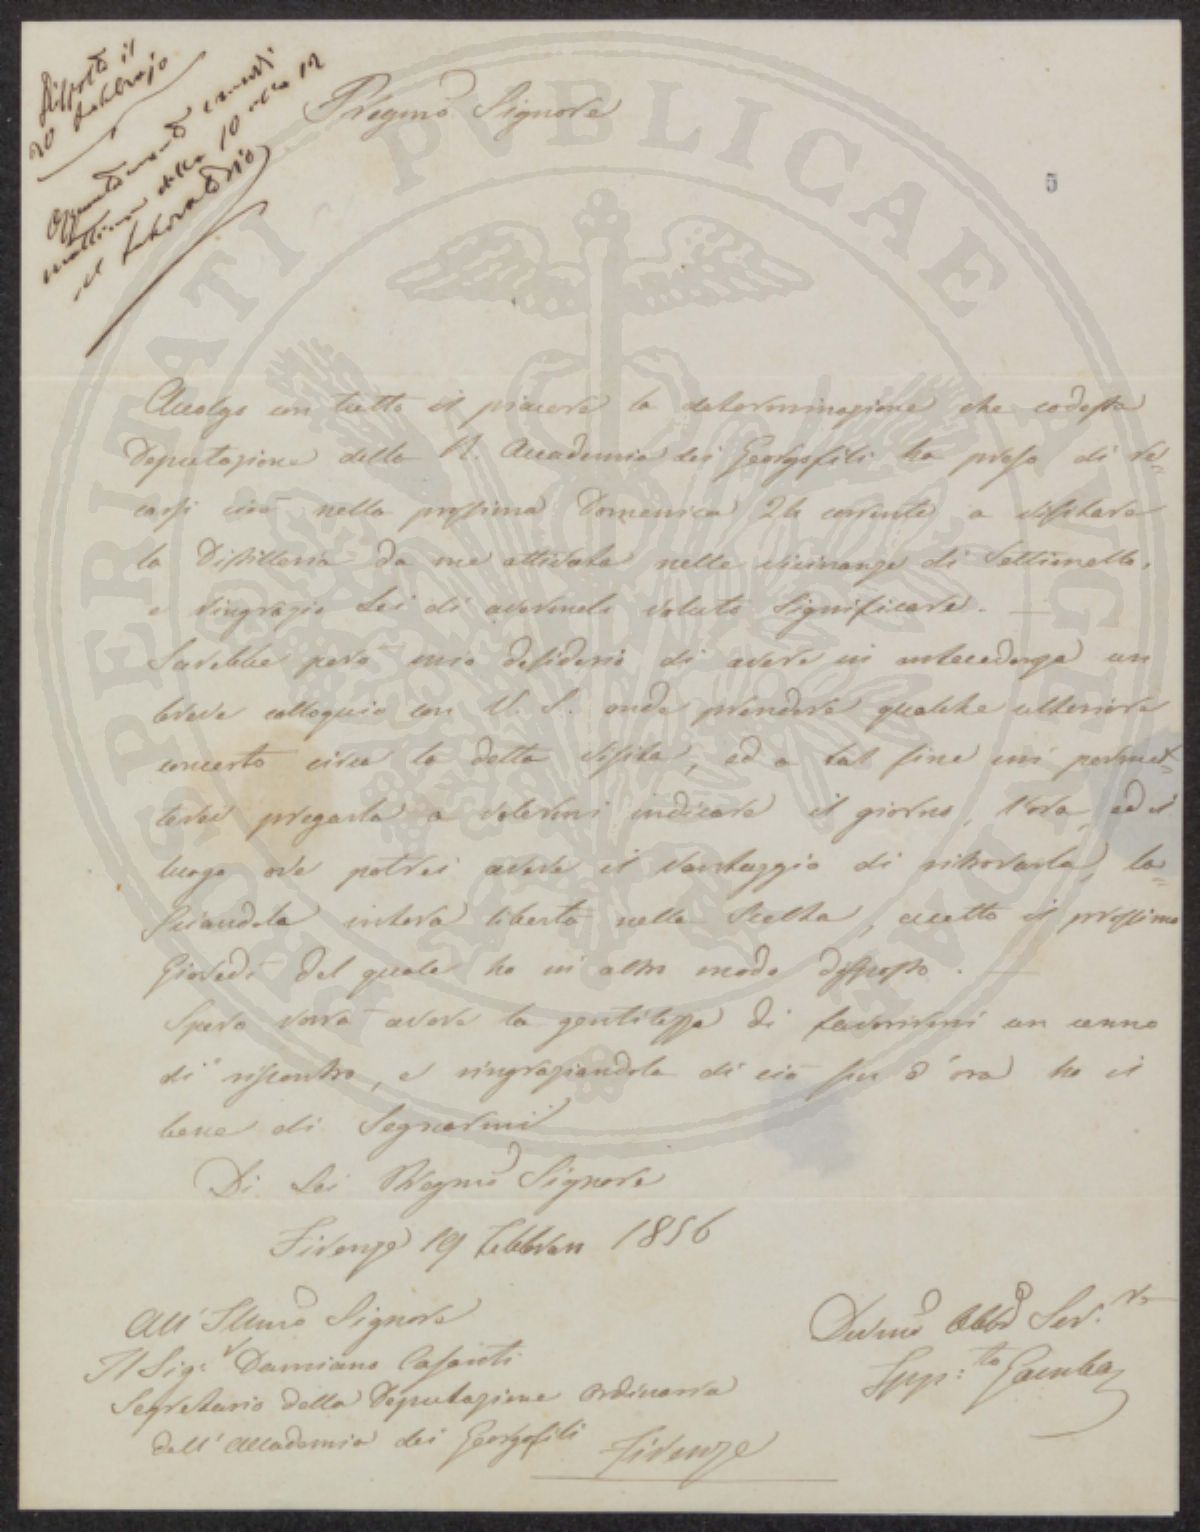 Risposto il
20 Febbrajo
Appuntamento
mattina dalle 10 alle 12
al Laboratorio
Pregmo Signore
5
Accolgo con tutto il piacere la determinazione che codesta
Deputazione della R. Accademia dei Georgofili ha preso di re=
carsi cioè nella prossima Domenica 24 corrente a visitare
la Distilleria da me attivata nelle vicinanze di Settimello,
e ringrazio Lei di avermelo voluto significare. —
Sarebbe però mio desiderio di avere in antecedenza un
breve colloquio con V. S. onde prendere qualche ulteriore
concerto circa la detta visita, ed a tal fine mi permet=
terei pregarla a volermi indicare il giorno, l'ora, ed il
luogo ove potrei avere il vantaggio di ritrovarla, la=
sciandola intera libertà nella scelta, eccetto il prossimo
Giovedì del quale ho in altro modo disposto. —
Spero vorrà avere la gentilezza di favorirmi un cenno
di riscontro, e ringraziandola di ciò fin d'ora ho il
bene di segnarmi
Di Lei Pregmo Signore
Firenze 19 Febbraio 1856
All' Illmo Signore
Il Sigr Damiano Casanti
Segretario della Deputazione Ordinaria
dell' Accademia dei Georgofili
Firenze
Devmo Obbo Serv.re
Gipp:to Gamba
RERUM PUBLICAE
PROSPERITATI AUGENDAE